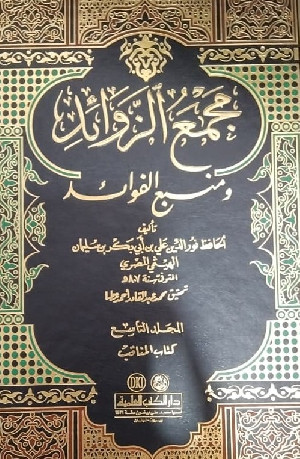 مجمع الزوائد
ومنبع الفوائد
تأليف
الحافظ نور الدين علي بن أبي بكر بن سليمان
الهيثمي المصري
المتوفى سنة ٨٠٧هـ
تحقيق محمد عبد القادر أحمد عطا
المجلد التاسع
كتاب المناقب
DKI
دار الكتب العلمية